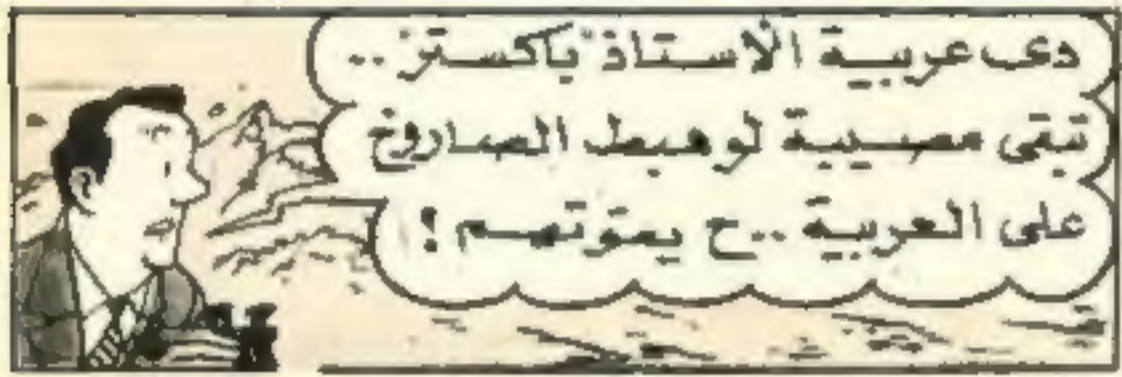 دى عربية الاستاذ باكستر ..
تبقى مصيبة لو هبط الصاروخ
على العربية .. ح يموّتهم !